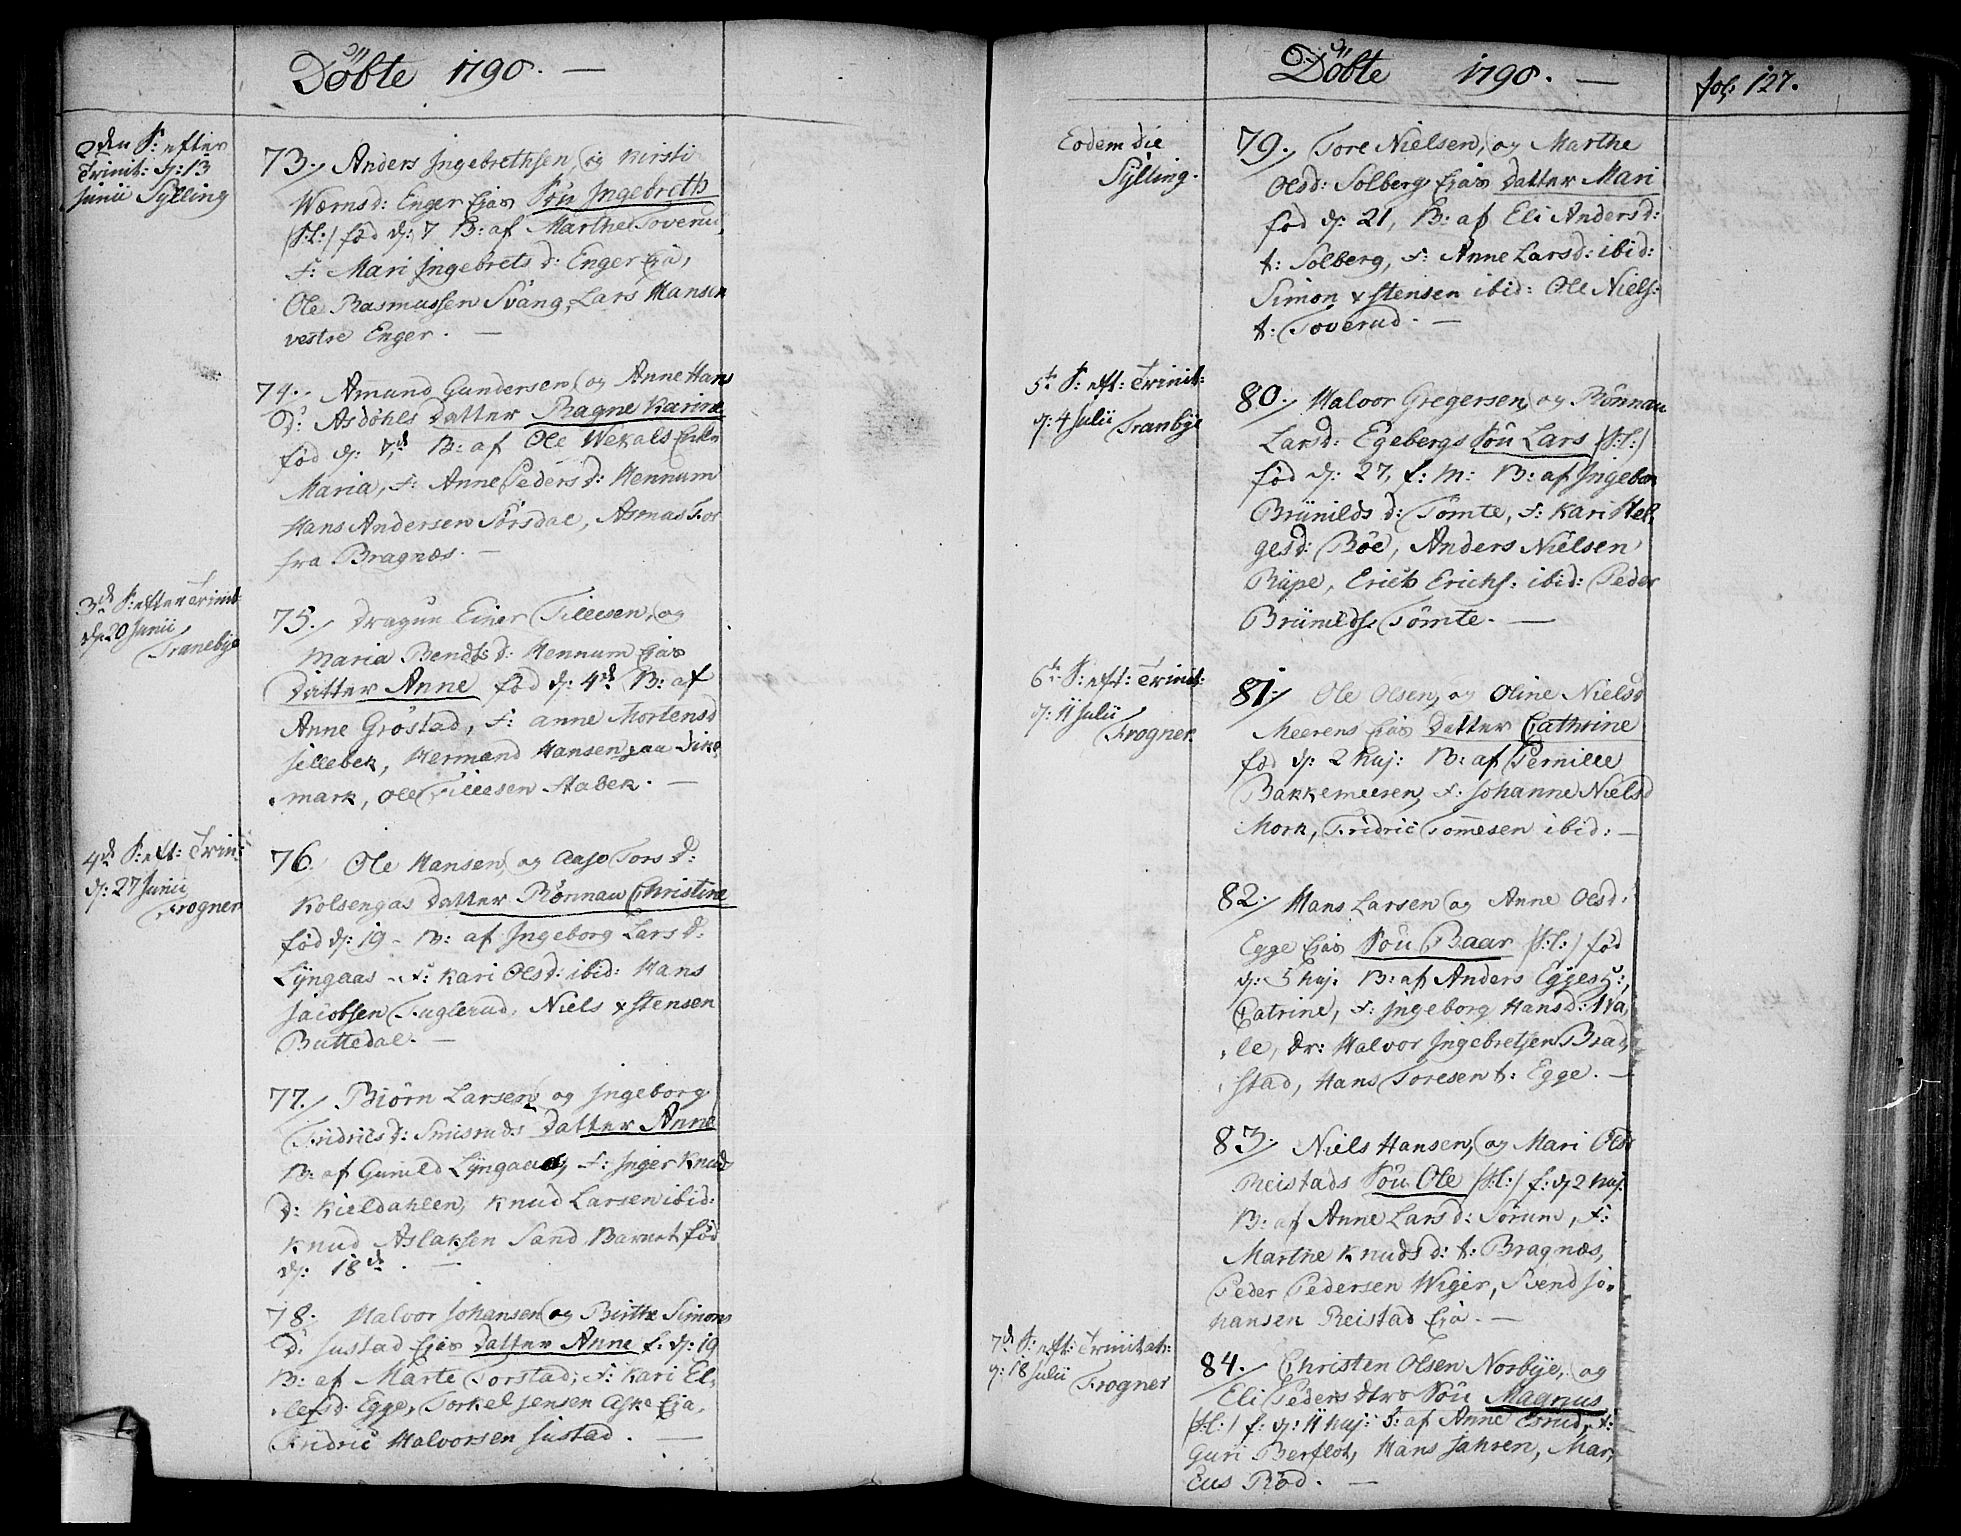 Döbte 1790. —
2den S: efter
Trinit: d: 13
Junii Sylling
73./ Anders Ingebrethsen, og Kirsti
Wærnsd: Enger Ejas Sön Ingebreth
(S:L:) föd d: 7 B: af Marthe Toverud,
F: Mari Ingebrets d: Enger Eja,
Ole Rasmussen Svang, Lars Hansen
vestre Enger. —
74./ Amund Gundersen, og Anne Hans
D: Asdöhls Datter Ragne Karine
föd d: 7de B: af Ole Wekals Enke
Maria, F: Anne Peders d: Hennum
Hans Andersen Sörsdal, Asmas Tor
fra Bragnæs. —
3de S: efter Trinit:
d: 20 Junii
Tranebye
75./ Dragun Einer Tillesen, og
Maria Bendts d: Hennum Ejas
Datter Anne föd d: 4de B: af
Anne Gröstad, F: Anne Mortensd
Sillebek, Hermand Hansen paa Dik
mark, Ole Tillesen Stabek. —
4de S: eft: Trin:
d: 27 Junii
Frogner
76. Ole Hansen, og Aase Tors d:
Kolsengas Datter Rönnau Christine
föd d: 19 - B: af Ingeborg Lars d:
Lyngaas - F: Kari Olsd: ibid: Hans
Jacobsen Fuglerud, Niels Östensen
Buttedal. —
77./ Biörn Larsen, og Ingeborg
Fridrics d: Smisruds Datter Anne
B: af Gunild Lyngaas, F: Inger Knuds
d: Kieldahlen, Knud Larsen ibid:
Knud Aslaksen Sand Barnet föd
d: 18de. —
78. Halvor Johansen, og Birthe Simons
D: Justad Ejas Datter Anne f: d: 19
B: af Marte Torstad, F: Kari El,
lefsd: Egge, Torkel Jensen Aske Eja,
Fridric Halvorsen Justad. —
Döbte 1790. —
fol: 127.
Eodem die
Sylling.
79./ Tore Nielsen, og Marthe
Olsd: Solberg Ejas Datter Mari
föd d: 21, B: af Eli Anders d:
t: Solberg, F: Anne Larsd: ibid:
Simon Östensen ibid: Ole Niels:
t: Toverud. —
5te S: eft: Trinit:
d: 4 Julii
Tranbye
80./ Halvor Gregersen, og Rönnau
Larsd: Egebergs Sön Lars (S:L:)
föd d: 27, f: M: B: af Ingebor
Brünilds d: Tömte, F: Kari Hel,
gesd: Böe, Anders Nielsen
Rüpe, Erich Erichs: ibid: Peder
Brünilds: Tömte. —
6te S: eft: Trinit:
d: 11 Julii
Frogner
81./ Ole Olsen, og Oline Nielsd
Meerens Ejas Datter Cathrine
föd d: 2 huj: B: af Pernille
Bakkemeeren, F: Johanne Nielsd
Mork, Fridric Tommesen ibid: —
82./ Hans Larsen og Anne Olsd:
Egge Ejas Sön Baar (S:L:) föd
d: 5 huj. B: af Anders Egges H:,
Catrine, F: Ingeborg Hansd: Wa,
le, Dr: Halvor Ingebretsen Brad,
stad, Hans Toresen t: Egge. —
83./ Niels Hansen, og Mari Olsd
Reistads Sön Ole (S:L:) f: d: 2 huj.
B: af Anne Lars d: Sörum, F:
Marthe Knuds d: t: Bragnæs,
Peder Pedersen Wiger, Svend Jo,
hansen Reistad Eja. —
7de S: eft: Trinitat:
d: 18 Julii
Frogner
84./ Christen Olsen Norbye, og
Eli Peders dtrs Sön Magnus
(S:L:) f: d: 11 huj: B: af Anne Esrud, F:
Guri Berflot, Hans Jahren, Mar,
cus Röd. —